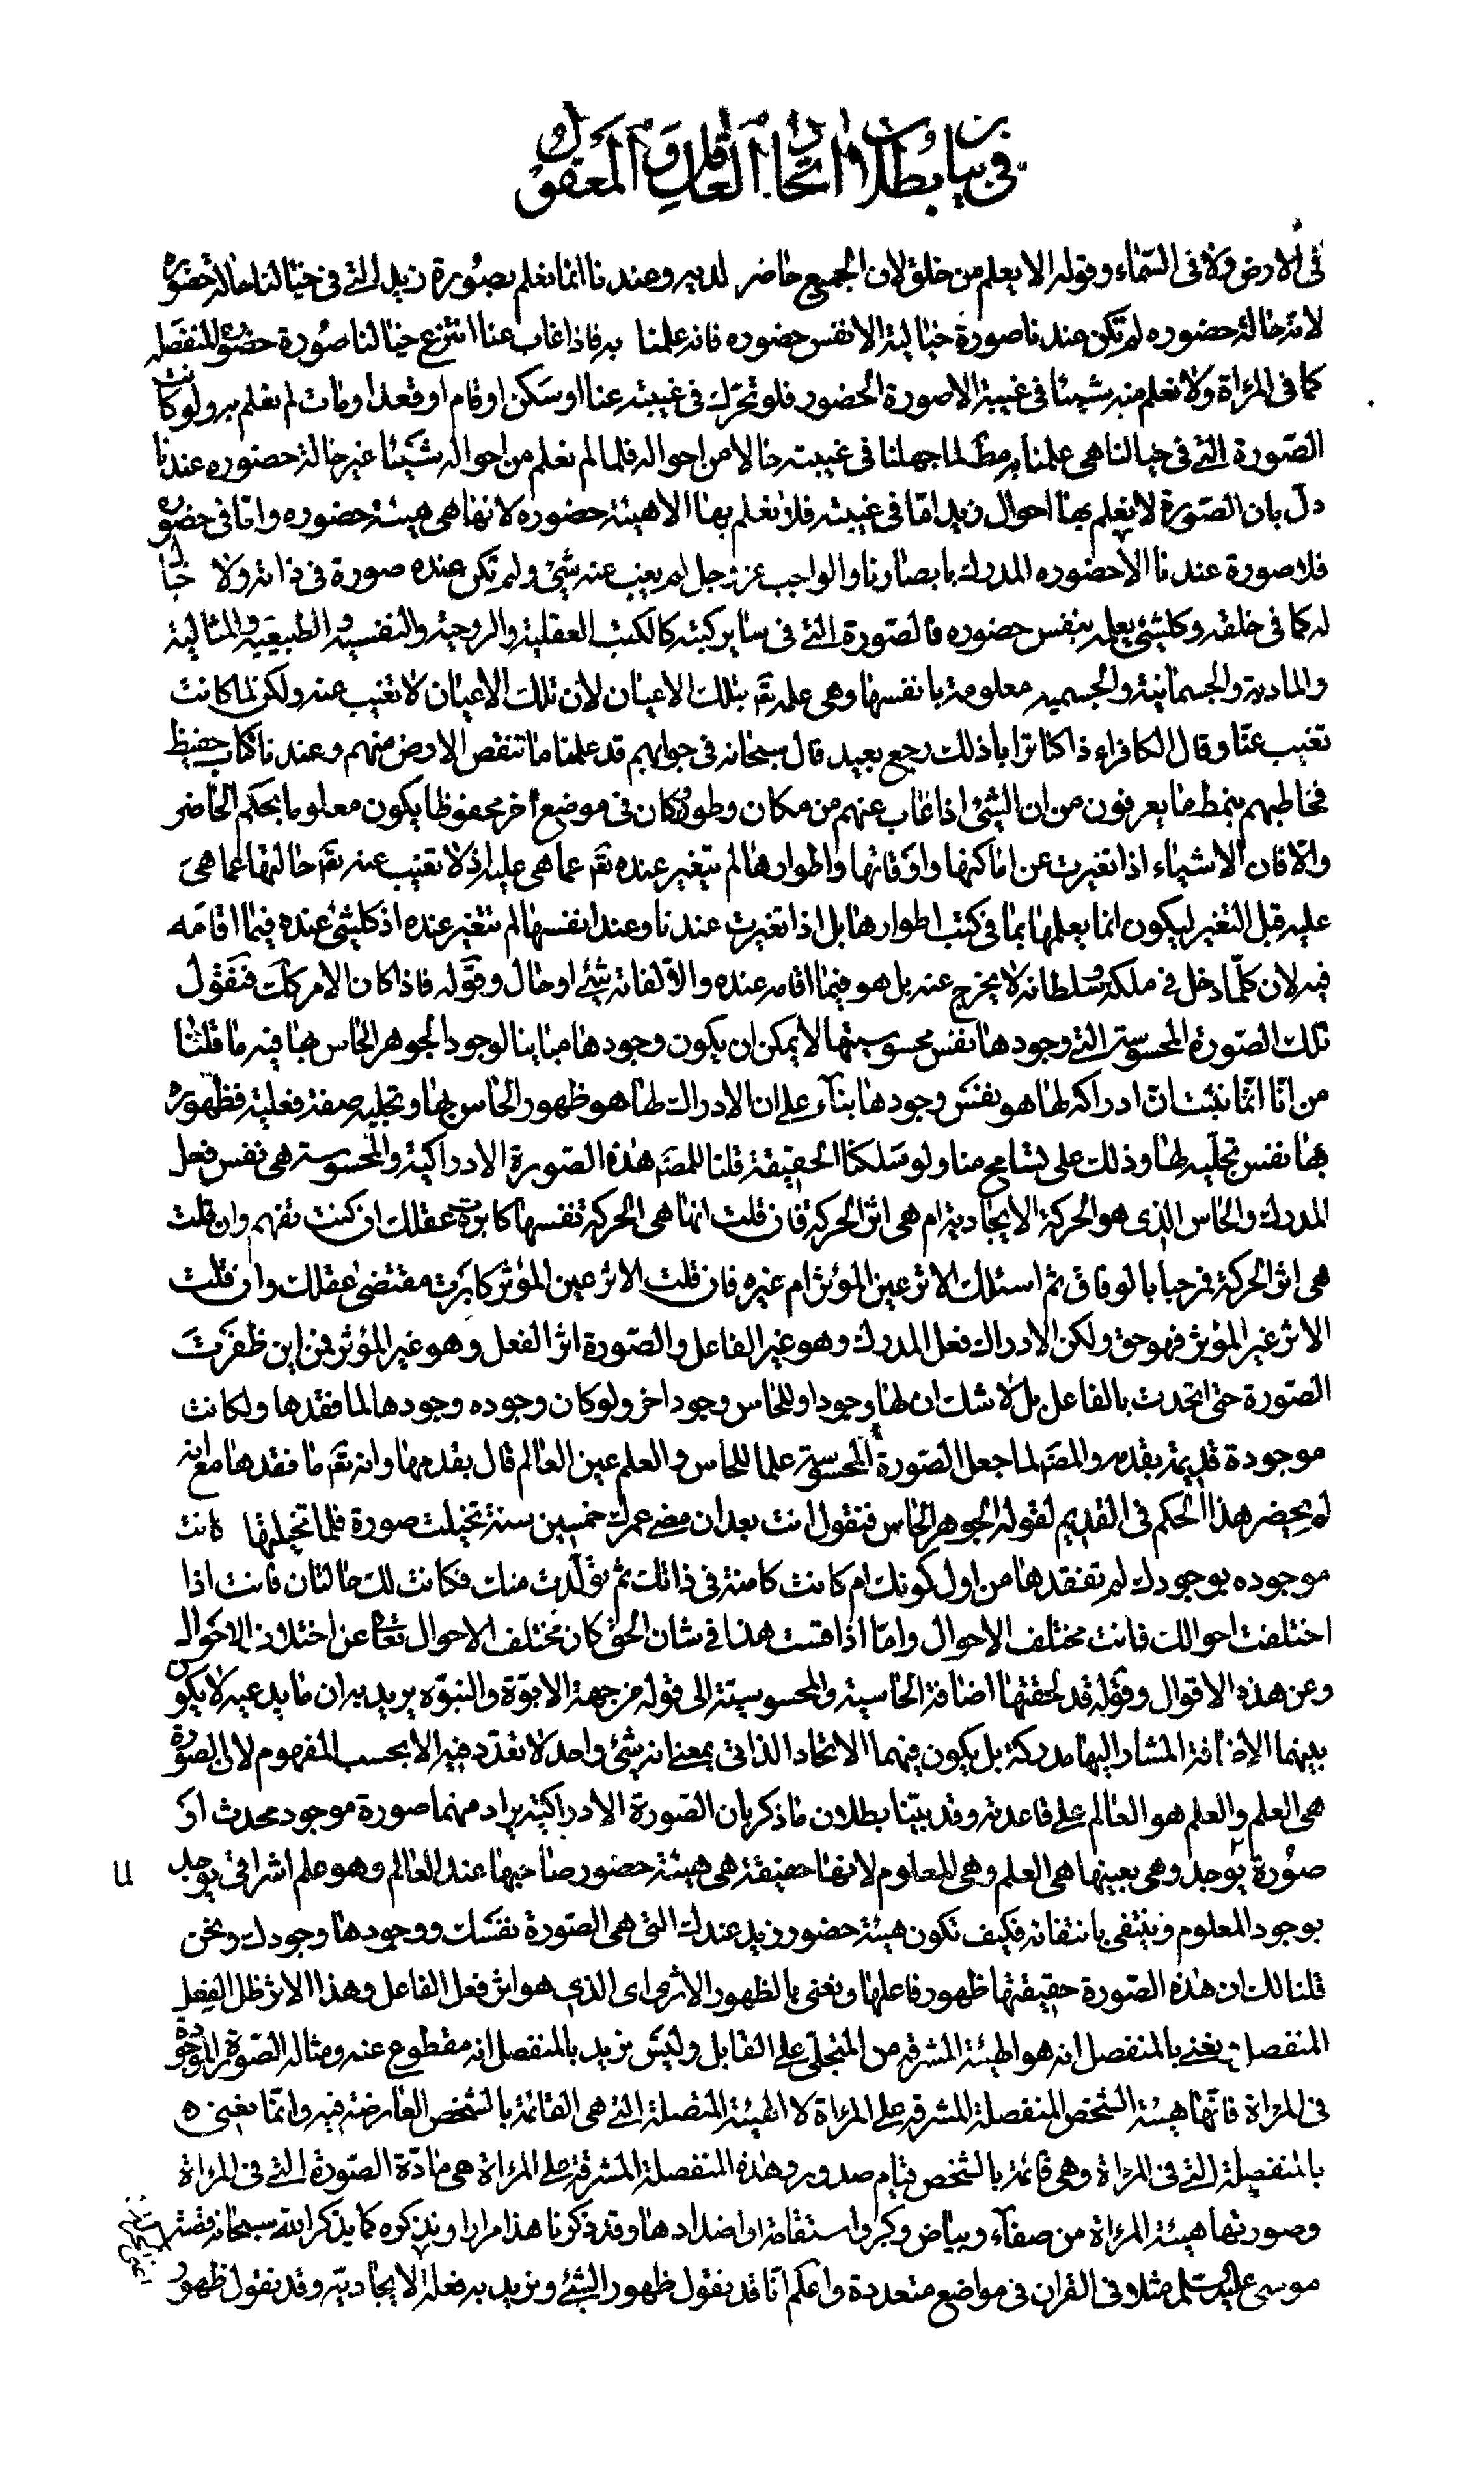 في بيان بطلان اتحاد العاقل والمعقول
فى الارض ولا فى السماء وقوله الا يعلم من خلق لان الجميع حاضر لديه وعندنا انما نعلم بصورة زيد التي فى خيالنا حالة حضوره
لانه حالة حضوره لم تكن عندنا صورة خيالية الا نفس حضوره فانه علمنا به فاذا غاب عنا انتزع خيالنا صورة حضوره المنفصلة
كما فى المرءاة ولا نعلم منه شيئا فى غيبته الا صورة الحضور فلو تحرك فى غيبته عنا او سكن او قام او قعد او مات لم نعلم به ولو كانت
الصورة التي فى خيالنا هى علمنا به مط لما جهلنا فى غيبته حالا من احواله فلما لم نعلم من احواله شيئا غير حالة حضوره عندنا
دل بان الصورة لا نعلم بها احوال زيد اما فى غيبته فلا نعلم بها الا هيئة حضوره لانها هى هيئة حضوره واما فى حضوره
فلا صورة عندنا الا حضوره المدرك بابصارنا والواجب عز وجل لم يغب عنه شئ ولم تكن عنده صورة فى ذاته ولا خيال
له كما فى خلقه وكلشئ يعلمه بنفس حضوره فالصورة التي فى ساير كتبه كالكتب العقلية والروحية والنفسية والطبيعية والمثالية
والمادية والجسمانية والجسمية معلومة بانفسها وهى علمه تع بتلك الاعيان لان تلك الاعيان لا تغيب عنه ولكن لما كانت
تغيب عنا وقال الكافر اءذا كنا ترابا ذلك رجع بعيد قال سبحانه فى جوابهم قد علمنا ما تنقص الارض منهم وعندنا كتاب حفيظ
فخاطبهم بنمط ما يعرفون من ان الشئ اذا غاب عنهم من مكان وطور كان فى موضع اخر محفوظا يكون معلوما بحكم الحاضر
والا فان الاشياء اذا تغيرت عن اماكنها واوقاتها واطوارها لم يتغير عنده تع عما هى عليه اذ لا تغيب عنه تع حالتها عما هى
عليه قبل التغير ليكون انما يعلمها بما فى كتب اطوارها بل اذا تغيرت عندنا وعند انفسها لم تتغير عنده اذ كلشئ عنده فيما اقامه
فيه لان كلما دخل فى ملكه وسلطانه لا يخرج عنه بل هو فيما اقامه عنده والا لفاته شئ او حال وقوله فاذا كان الامر كك فنقول
تلك الصورة المحسوسة التي وجودها نفس محسوسيتها لا يمكن ان يكون وجودها مباينا لوجود الجوهر الحاس بها فيه ما قلنا
من انا انما نثبت ان ادراكه لها هو نفس وجودها بناء على ان الادراك لها هو ظهور الحاس بها وتجليه صفة فعلية فظهوره
بها نفس تجليه لها وذلك على تسامح منا ولو سلكنا الحقيقة قلنا للمص هذه الصورة الادراكية والمحسوسة هى نفس فعل
المدرك والحاس الذى هو الحركة الايجادية ام هى اثر الحركة فان قلت انها هى الحركة نفسها كابرت عقلك ان كنت تفهم وان قلت
هى اثر الحركة فمرحبا بالوفاق ثم اسئلك الاثر عين المؤثر ام غيره فان قلت الاثر عين المؤثر كابرت مقتضى عقلك وان قلت
الاثر غير المؤثر فهو حق ولكن الادراك فعل المدرك وهو غير الفاعل والصورة اثر الفعل وهو غير المؤثر فمن اين ظفرت
الصورة حتى اتحدت بالفاعل بل لا شك ان لها وجودا وللحاس وجود اخر ولو كان وجوده وجودها لما فقدها ولكانت
موجودة قديمة بقدمه والمص لما جعل الصورة المحسوسة علما للحاس والعلم عين العالم قال بقدمها وانه تع ما فقدها مع انه
لم يحضر هذا الحكم فى القديم لقوله الجوهر الحاس فنقول انت بعد ان مضى عمرك خمسين سنة تخيلت صورة فلما تخيلتها كانت
موجوده بوجودك لم تفقدها من اول كونك ام كانت كامنة فى ذاتك ثم تولدت منك فكانت لك حالتان فانت اذا
اختلفت احوالك فانت مختلف الاحوال واما اذا قست هذا فى شان الحق كان مختلف الاحوال تعالى عن اختلاف الاحوال
وعن هذه الاقوال وقوله قد لحقتها اضافة الحاسية والمحسوسية الى قوله من جهة الابوة والنبوه يريد به ان ما يدعيه لا يكون
بينهما الاضافة المشار اليها مدركة بل يكون فيهما الاتحاد الذاتى بمعنى انه شئ واحد لا تعدد فيه الا بحسب المفهوم لان الصورة
هى العلم والعلم هو العالم على قاعدته وقد بينا بطلان ما ذكر بان الصورة الادراكية يراد منها صورة موجود محدث او
صورة يوجد وهى بعينها هى العلم وهى المعلوم لانها حقيقة هى هيئة حضور صاحبها عند العالم وهو علم اشراقى يوجد
بوجود المعلوم وينتفى بانتفائه فكيف تكون هيئة حضور زيد عندك التى هى الصورة نفسك ووجودها وجودك ونحن
قلنا لك ان هذه الصورة حقيقتها ظهور فاعلها ونعنى بالظهور الاثرى اى الذى هو اثر فعل الفاعل وهذا الاثر ظل الفعل
المنفصل ونعنى بالمنفصل انه هو الهيئة المشرقة من المتجلى على القابل وليس نريد بالمنفصل انه مقطوع عنه ومثاله الصورة الموجودة
فى المرءاة فانها هيئة الشخص المنفصلة المشرقة على المرءاة لا الهيئة المتصلة التي هى القائمة بالشخص العارضة فيه وانما نعنى ه
بالمنفصلة التي فى المرءاة وهى قائمة بالشخص قيام صدور وهذه المنفصلة المشرقة على المرءاة هى مادة الصورة التي فى المرءاة
وصورتها هيئة المرءاة من صفاء وبياض وكبر واستقامة او اضدادها وقد ذكرنا هذا مرارا ونذكره كما يذكر الله سبحانه قصة
موسى عليه السلم مثلا فى القران فى مواضع متعددة واعلم انا قد نقول ظهور الشئ ونريد به فعله الايجادية وقد نقول ظهور